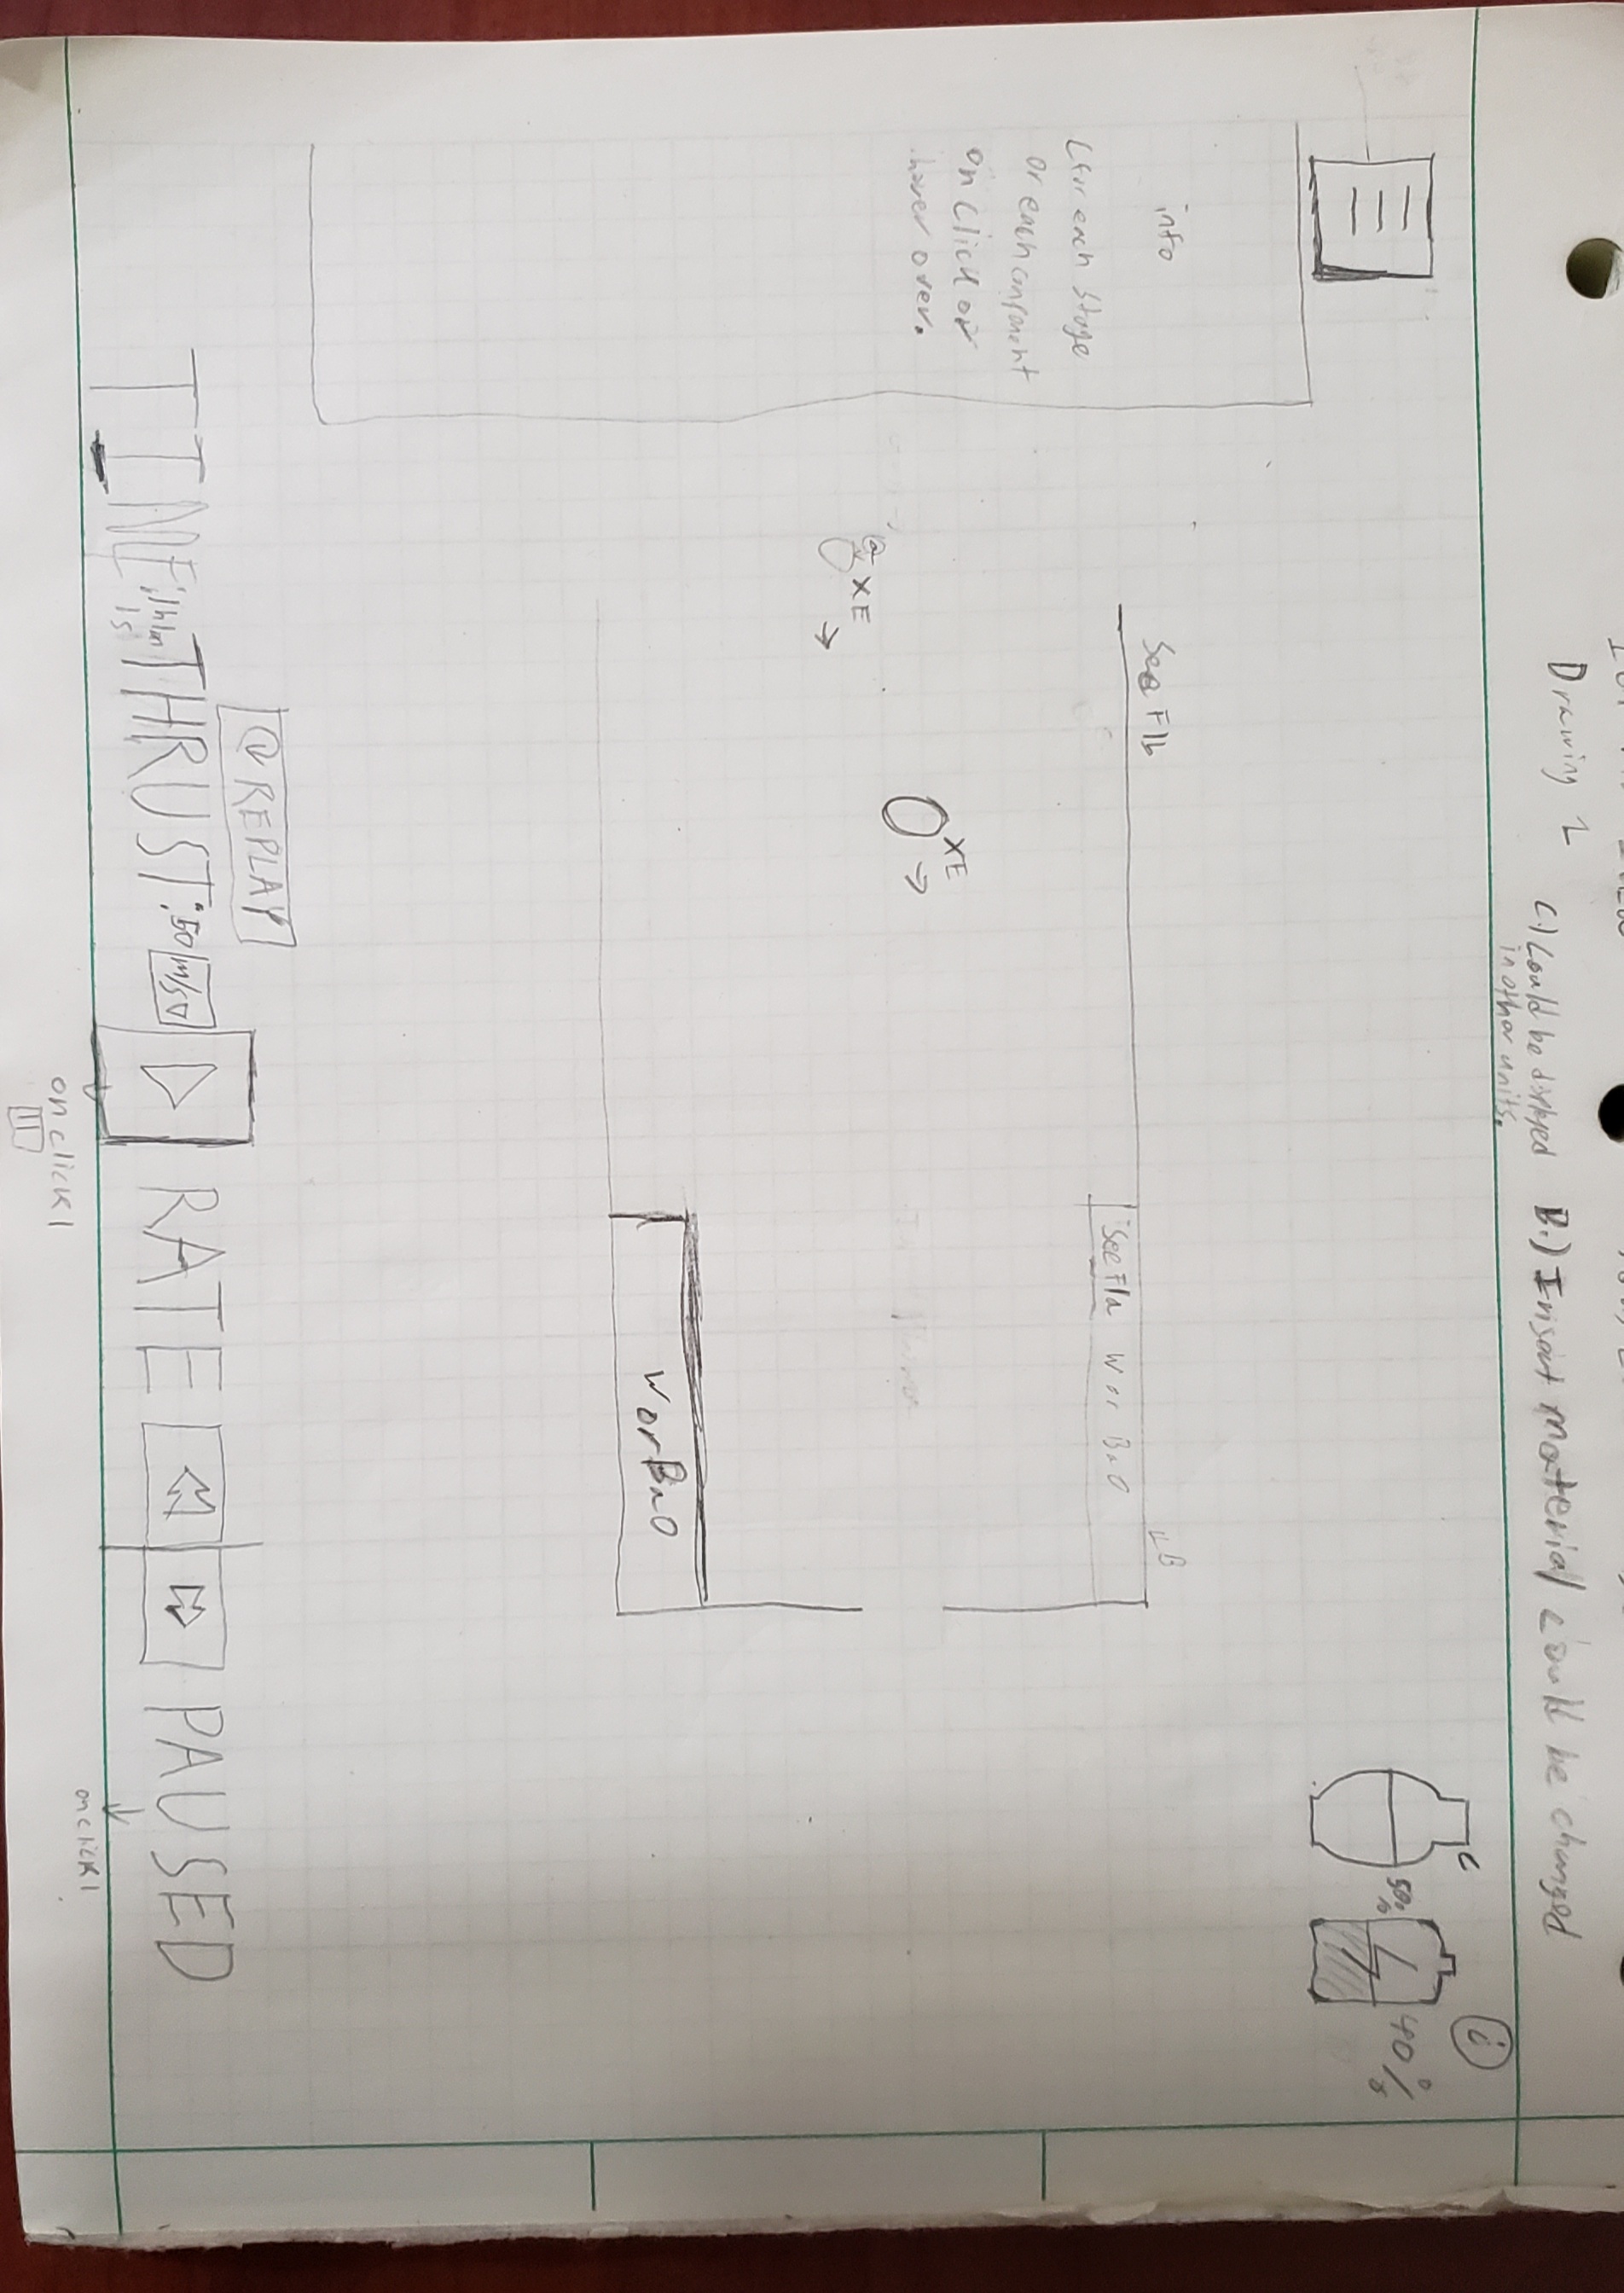 Drawing 2
C.) Could be displayed
in other units.
B.) Insert material could be changed
i
C
50%
40%
info
(for each stage
or each component
on click or
hover over.
See F1b
See F1a W or BaO
LB
XE
→
XE
→
W or BaO
REPLAY
TIME: 1h 1m
1s
THRUST: 50 m/s
RATE
PAUSED
on click 1
on click 1